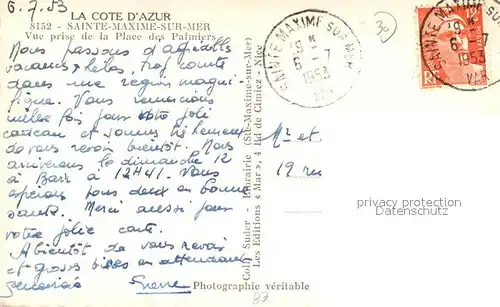 6.7.53
LA COTE D'AZUR
8152 - SAINTE-MAXIME-SUR-MER
Vue prise de la Place des Palmiers
Nous passons d'agréables
vacances hélas, trop courtes
dans une région magni-
fique. Vous remercions
mille fois pour votre joli
cadeau et sommes tellement
de vous revoir bientôt. Nous
arriverons le dimanche 12
à Barr à 12H41. Vous
espérons tous deux en bonne
santé. Merci aussi pour
votre jolie carte.
A bientôt de vous revoir
et grosses bises en attendant
Pierre
Photographie véritable
Coll. Suder - Librairie (Ste-Maxime-sur-Mer)
Les Editions « Mar », 4 Bd de Cimiez - Nice
SAINTE MAXIME SUR MER
9 H
6 - 7
1953
VAR
30
Mr et
19 rue
SAINTE MAXIME
9 H
6 - 7
1953
VAR
RF
privacy protection
delcampe.net